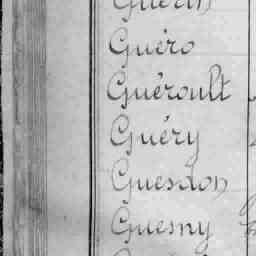 Guérin
Guéro
Guéroult
Guéry
Guesdon
Guesny